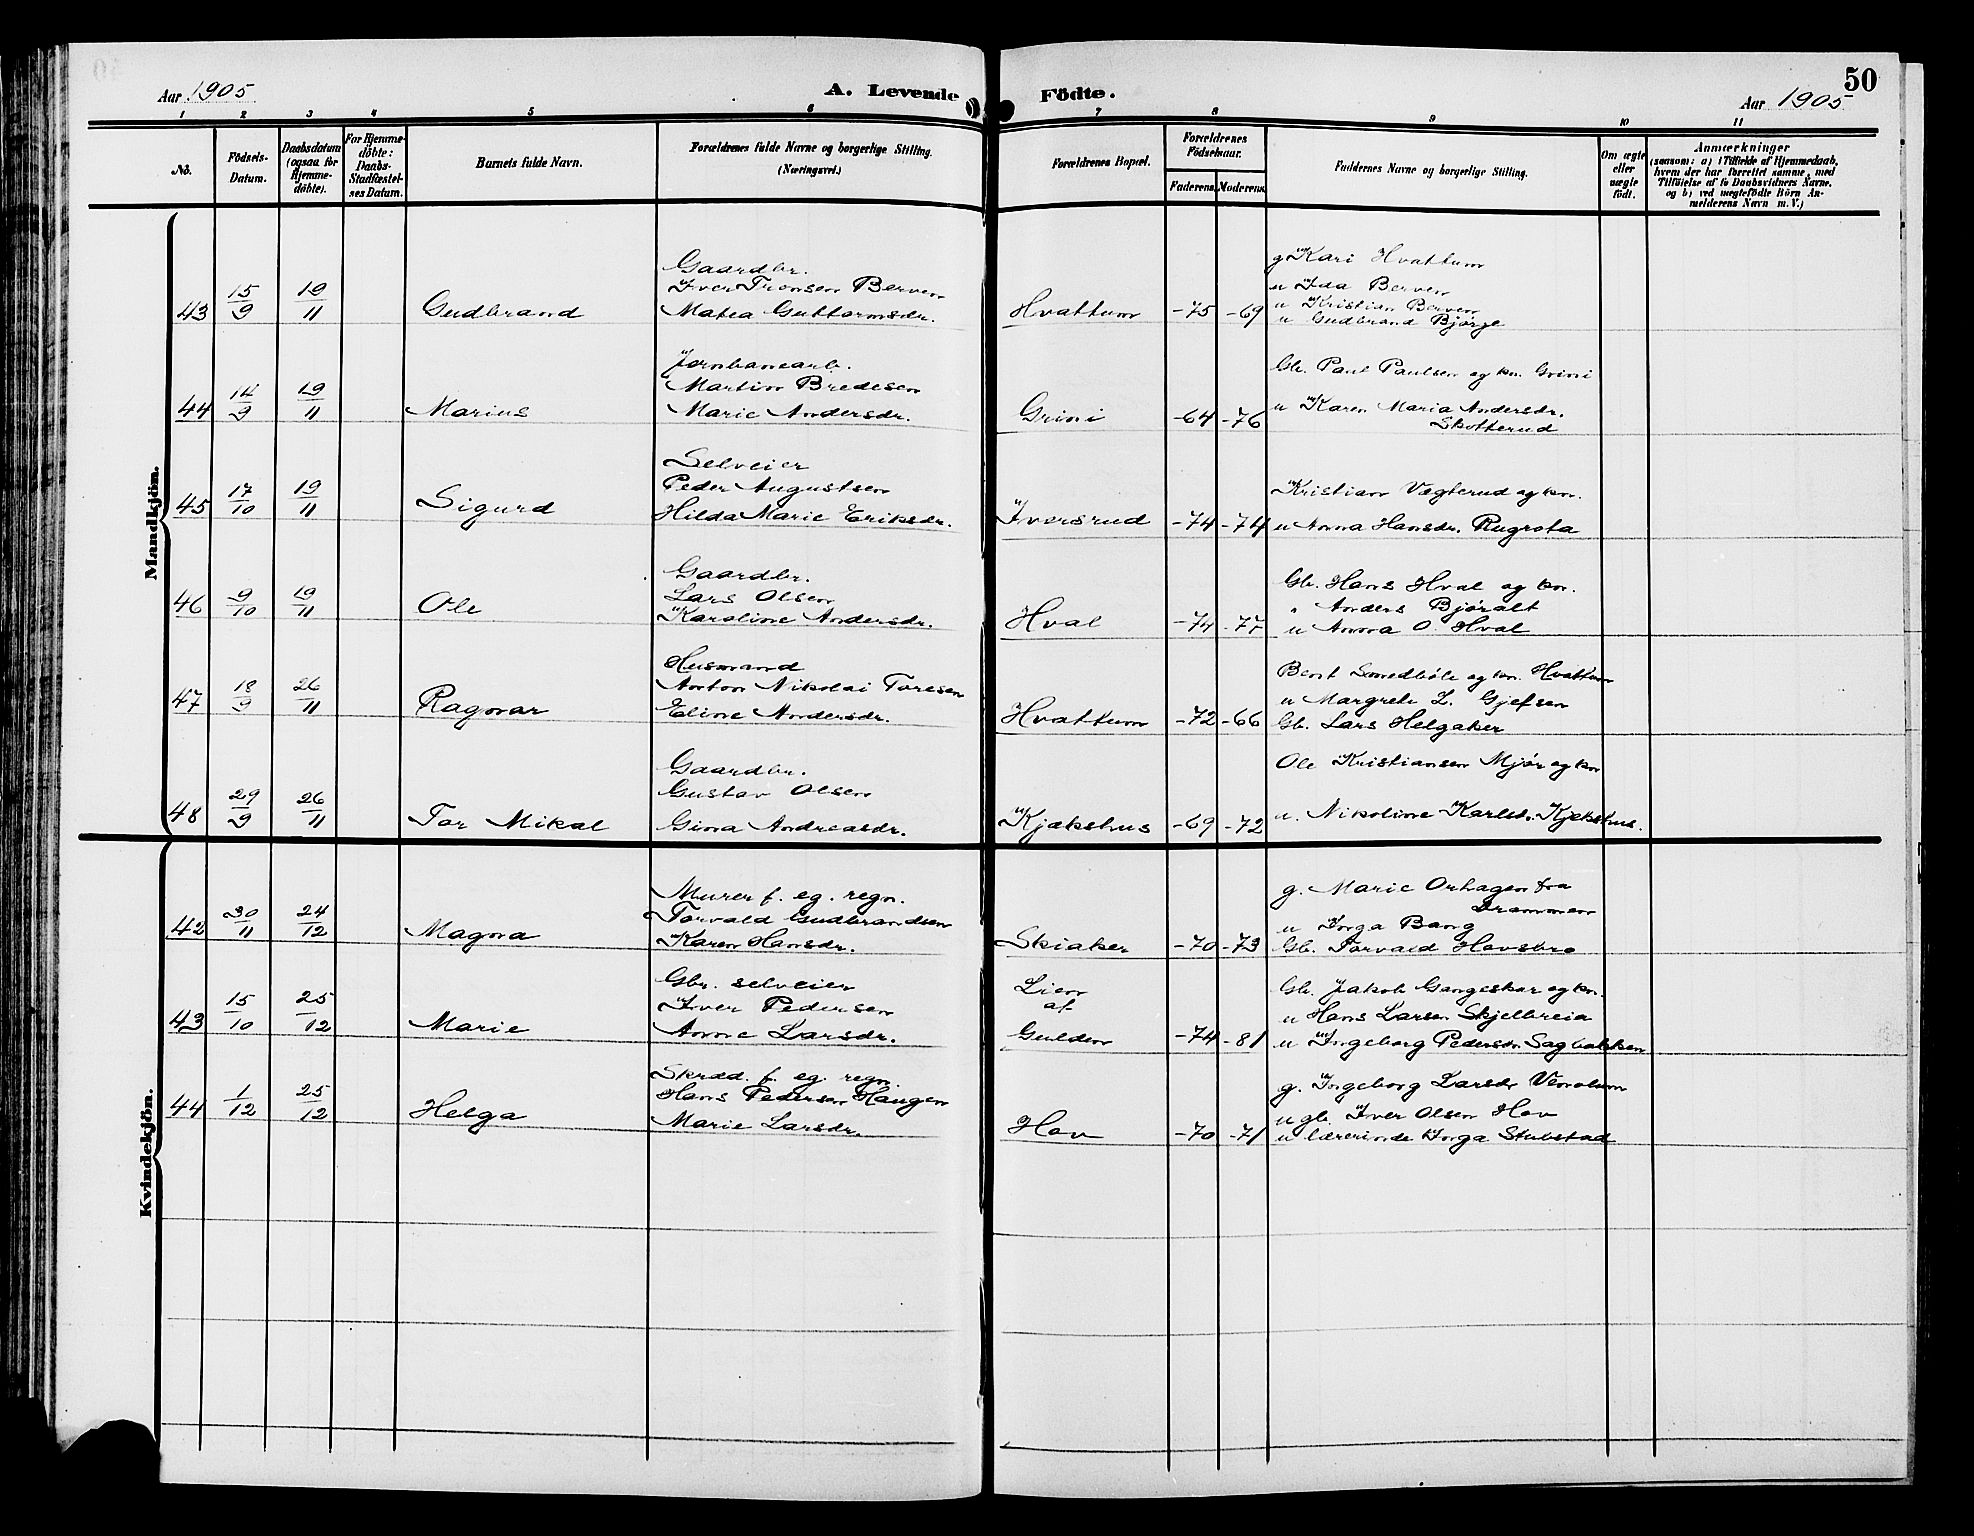 Aar 1905
A. Levende Födte.
50
Aar 1905
1 2 3 4 5 6 7 8 9 10 11
No.
Födsels-Datum.
Daabsdatum (ogsaa for Hjemmedöbte).
For Hjemmedöbte: Daabs-Stadfæstelses Datum.
Barnets fulde Navn.
Forældrenes fulde Navne og borgerlige Stilling. (Næringsvei.)
Forældrenes Bopæl.
Forældrenes Födselsaar.
Faderens. Moderens.
Faddernes Navne og borgerlige Stilling.
Om ægte eller uægte födt.
Anmærkninger
(saasom: a) i Tilfælde af Hjemmedaab, hvem der har forrettet samme, med Tilföielse af to Daabsvidners Navne, og b) ved uægtefödte Börn Anmelderens Navn m. V.)
Mandkjön.
43 15/9 19/11 Gudbrand
Gaardbr.
Iver Tronsen Berven
Matea Guttormsdr.
Hvattum -75 -69
g Kari Hvattum
u Ida Berven
u Kristian Berven
u Gudbrand Bjørge
44 14/9 19/11 Marius
Jernbanearb.
Martin Bredesen
Marie Andersdr.
Grini -64 -76
Gb. Paul Paulsen og kn. Grini
u Karen Maria Andersdr.
Skotterud
45 17/10 19/11 Sigurd
Selveier
Peder Augustsen
Hilda Marie Eriksdr.
Iversrud -74 -74
Kristian Vægterud og kn.
u Anna Hansdr. Rugrota
46 9/10 19/11 Ole
Gaardbr.
Lars Olsen
Karoline Andersdr.
Hval -74 -77
Gb. Hans Hval og kn.
" Anders Bjøralt
u Anna O. Hval
47 18/9 26/11 Ragnar
Husmand
Anton Nikolai Toresen
Eline Andersdr.
Hvattum -72 -66
Bent Smedbøle og kn. Hvattum
u Margrete L. Gjefsen
Gb. Lars Helgaker
48 29/9 26/11 Tor Mikal
Gaardbr.
Gustav Olsen
Gina Andreasdr.
Kjækshus -69 -72
Ole Kristiansen Mjør og kn
u. Nikoline Karlsdr. Kjækshus.
Kvindekjön.
42 30/11 24/12 Magna
Murer f. eg. regn.
Torvald Gudbrandsen
Karen Hansdr.
Skiaker -70 -73
g. Marie Orhagen fra
Drammen
u Inga Bang
Gb. Torvald Hovsbro
43 15/10 25/12 Marie
Gbr. selveier
Iver Pedersen
Anne Larsdr.
Lien
af
Gulden -74 -81
Gb. Jakob Gangeskar og kn.
u Hans Larsen Skjelbreia
u Ingeborg Pedersdr. Sagbakken
44 1/12 25/12 Helga
Skræd. f. eg. regn.
Hans Pedersen Haugen
Marie Larsdr.
Hov -70 -71
g. Ingeborg Larsdr Venolum
u gb. Iver Olsen Hov
u lærerinde Inga Stubstad